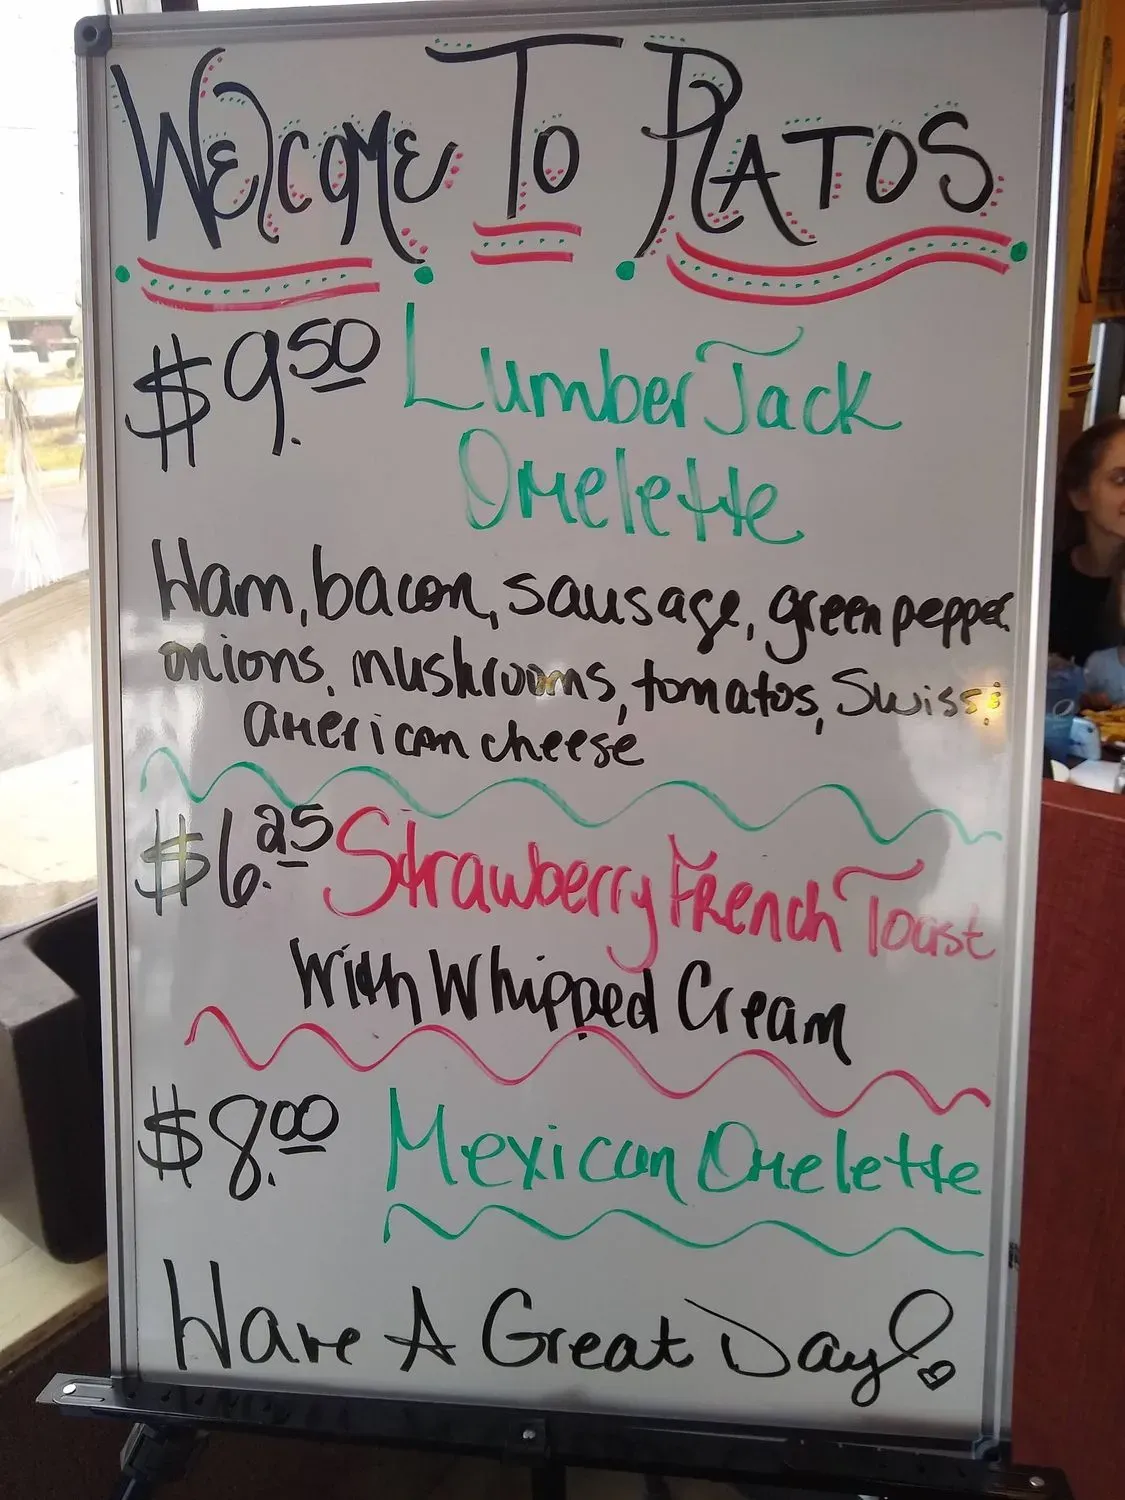 Welcome To Platos
$9.50 LumberJack
Omelette
Ham, bacon, sausage, green pepper
onions, mushrooms, tomatos, Swiss;
american cheese
$6.25 Strawberry French Toast
With Whipped Cream
$8.00 Mexican Omelette
Have A Great Day!